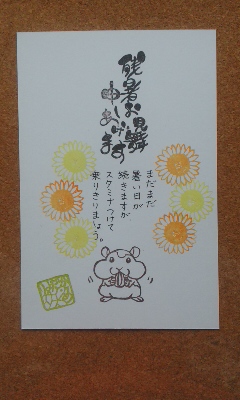 残暑お見舞
申しあげます
まだまだ
暑い日が
続きますが
スタミナつけて
乗りきりましょう。